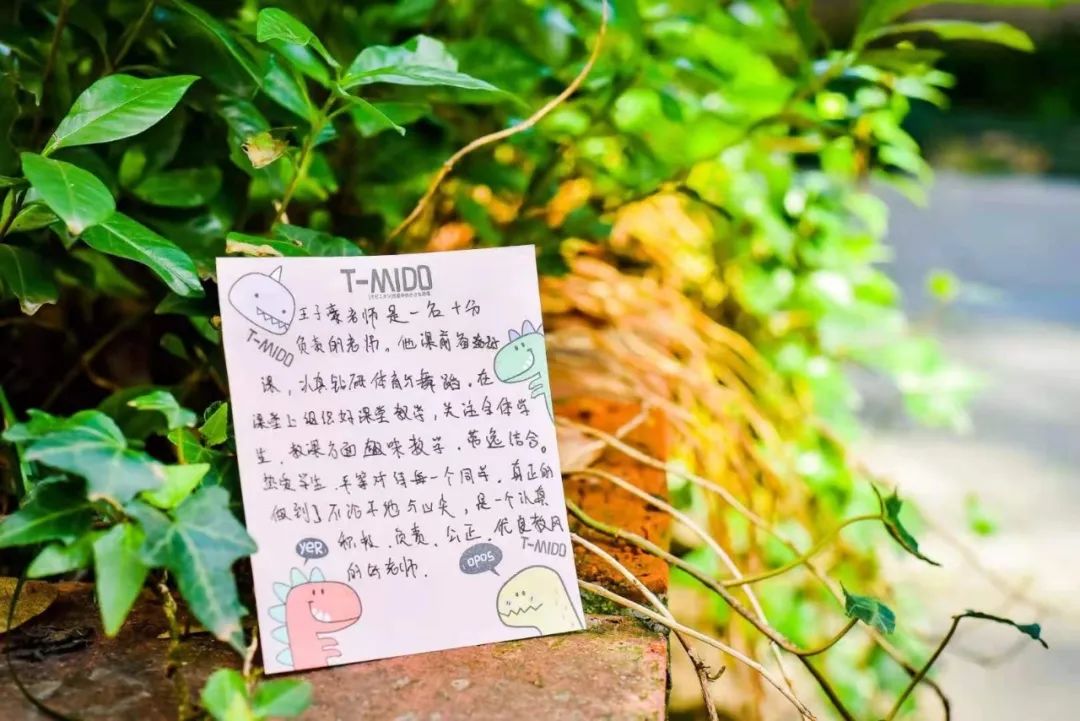 T-MIDO
T-MIDO
王子豪老师是一名十分
负责的老师。他课前备
课，认真钻研体育与舞蹈，在
课堂上组织好课堂教学，关注全体学
生，教课方面趣味教学，劳逸结合。
热爱学生，平等对待每一个同学，真正的
做到了不
是一个认真
积极，负责，公正，优良教风
的好老师.
T-MIDO
YER
OPOS